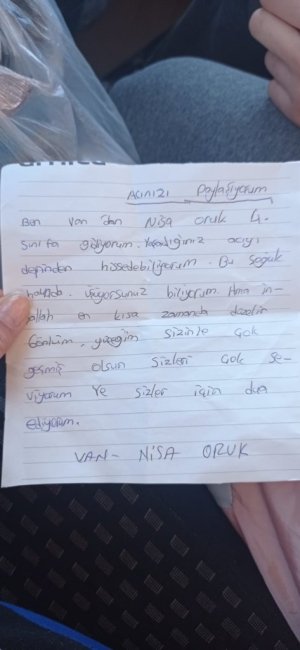 ACINIZI Paylaşıyorum
Ben Van dan Nisa oruk 4.
Sınıfa gidiyorum. Yaşadığınız acıyı
depinden hissedebiliyorum. Bu soğuk
havada. Üşüyorsunuz biliyorum. Ama in-
şallah en kısa zamanda düzelir
Gönlüm, yüreğim sizinle çok
geçmiş olsun Sizleri çok se-
viyorum Ve sizler için dua
ediyorum.
VAN- NİSA ORUK